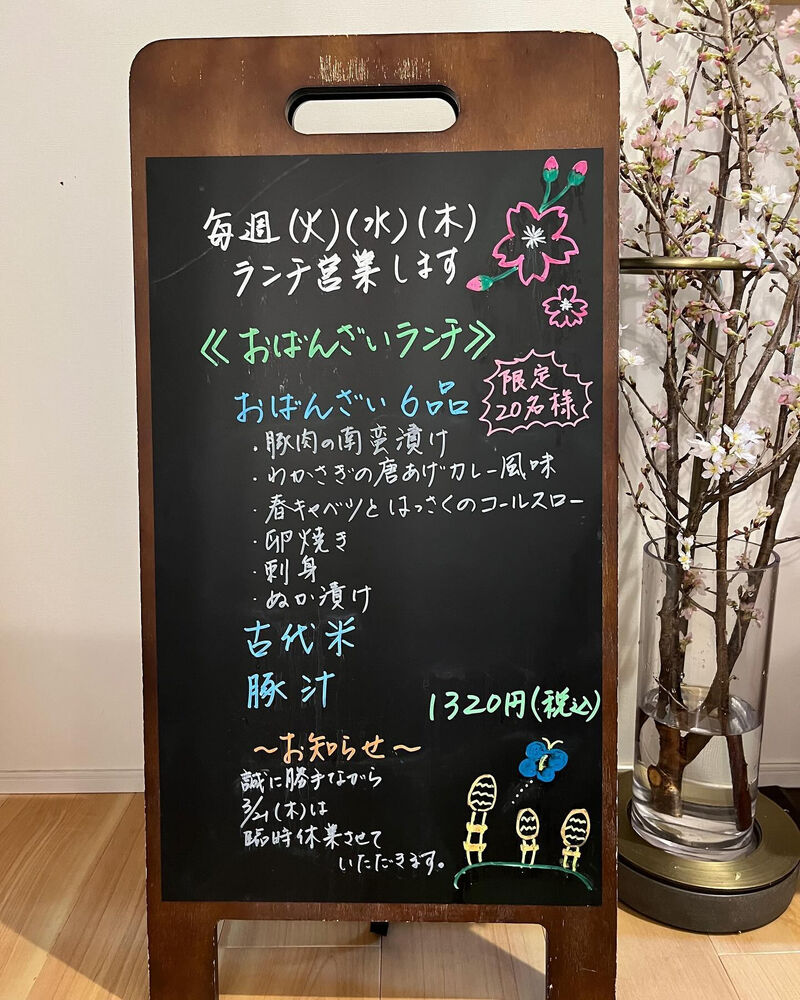 毎週(火)(水)(木)
ランチ営業します
≪おばんざいランチ≫
限定
20名様
おばんざい6品
・豚肉の南蛮漬け
・わかさぎの唐あげカレー風味
・春キャベツとはっさくのコールスロー
・卵焼き
・刺身
・ぬか漬け
古代米
豚汁
1320円(税込)
～お知らせ～
誠に勝手ながら
3/21(木)は
臨時休業させて
いただきます。